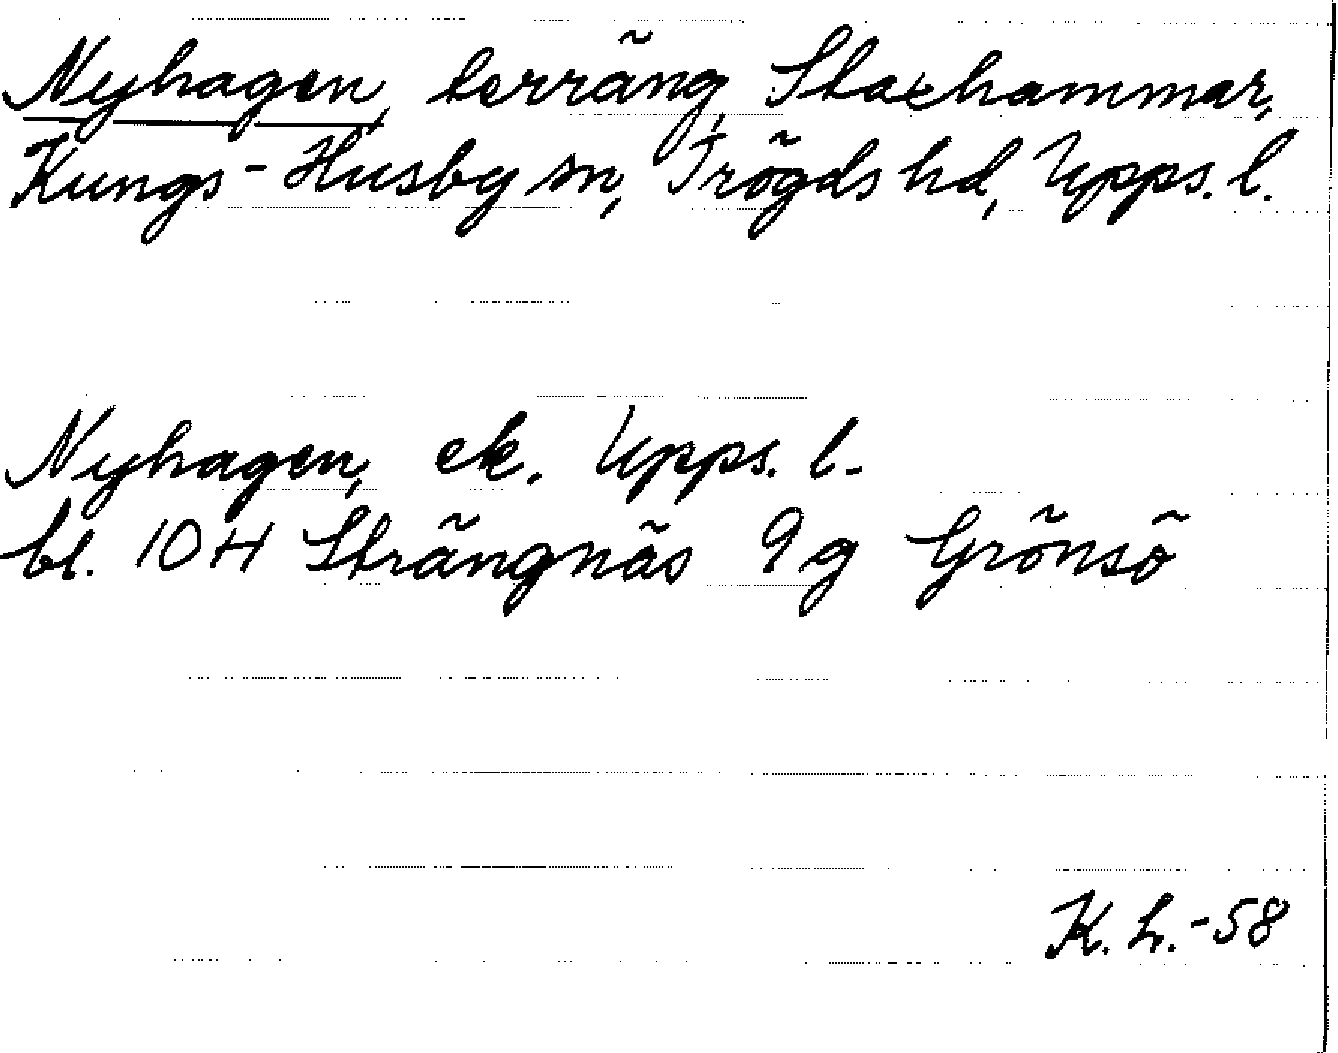 Nyhagen, terräng, Staxhammar,
Kungs-Husby sn, Trögds hd, Upps. l.
Nyhagen, ek. Upps. l.
bl. 10 H Strängnäs 9 g Grönsö
K. L. -58